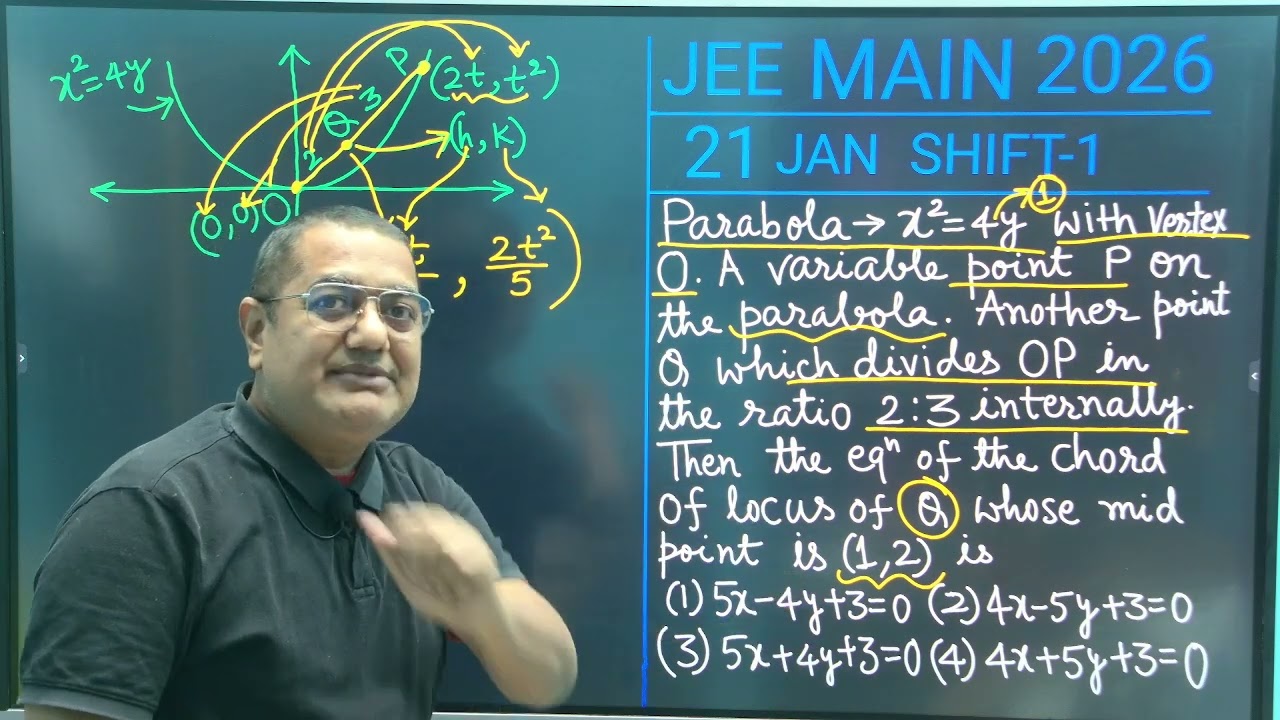 x²=4y
P
(2t, t²)
3
Q
(h, k)
2
(0,0)O
t, 2t²/5)
JEE MAIN 2026
21 JAN SHIFT-1
Parabola → x²=4y ① with vertex
O. A variable point P on
the parabola. Another point
Q which divides OP in
the ratio 2:3 internally.
Then the eqⁿ of the chord
of locus of Q whose mid
point is (1,2) is
(1) 5x-4y+3=0 (2) 4x-5y+3=0
(3) 5x+4y+3=0 (4) 4x+5y+3=0